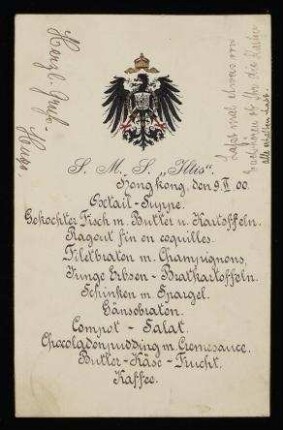 Herzl. Gruß-
Hugo.
Laßt mal etwas von
Euch hören ob Ihr die Karten
alle erhalten habt.
S. M. S. „Iltis".
Hong kong, den 9. II 00.
Oxtail-Suppe.
Gekochter Fisch m. Butter u. Kartoffeln.
Ragout fin en coquilles.
Filetbraten m. Champignons.
Junge Erbsen - Bratkartoffeln.
Schinken m. Spargel.
Gänsebraten.
Compot - Salat.
Chocoladenpudding m. Cremesauce.
Butter - Käse - Frucht.
Kaffee.